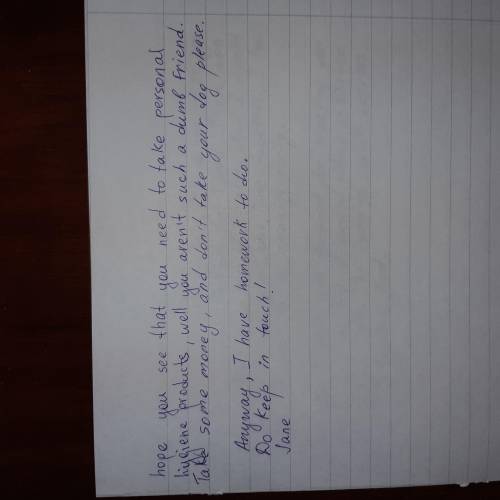 hope you see that you need to take personal
hygiene products, well you aren't such a dumb friend.
Take some money, and don't take your dog please.
Anyway, I have homework to do.
Do keep in touch!
Jane